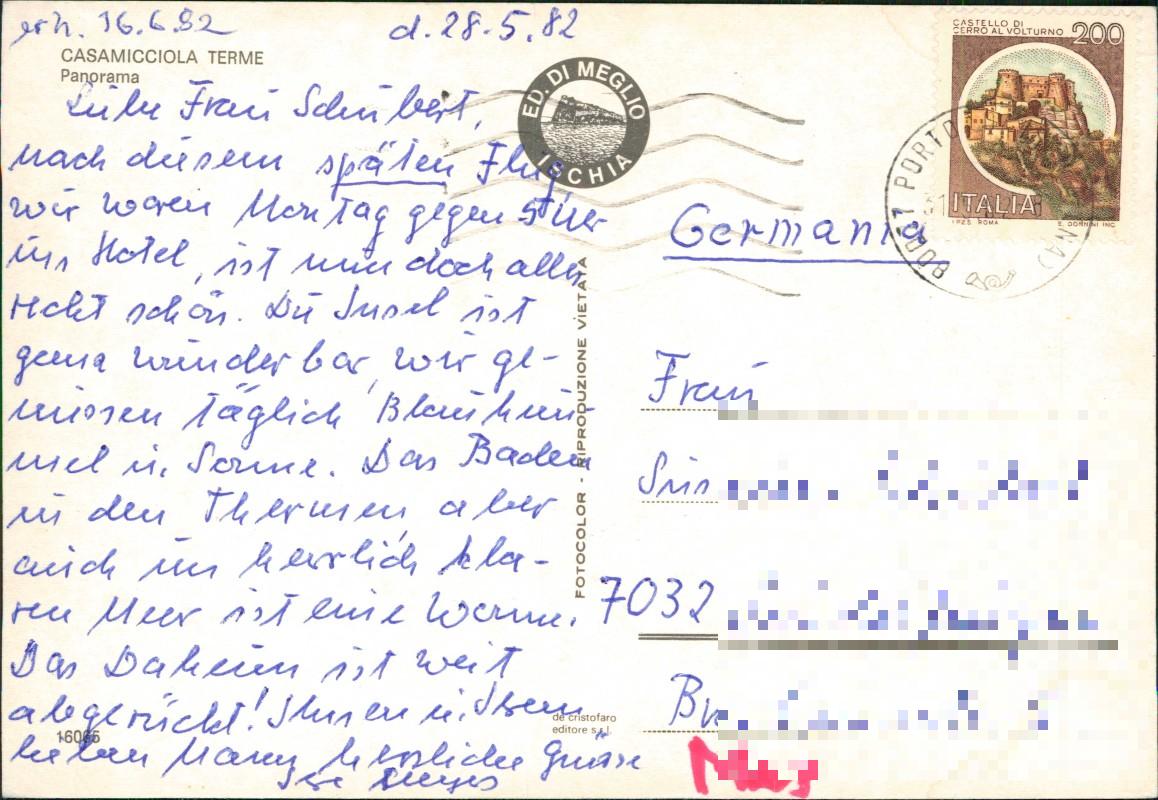 erh. 16.6.82
d. 28.5.82
CASAMICCIOLA TERME
Panorama
Liebe Frau Schubert,
nach diesem späten Flug
wir waren Montag gegen 5 Uhr
im Hotel, ist nun doch alles
recht schön. Die Insel ist
ganz wunderbar, wir ge-
niessen täglich Blauhim-
mel u. Sonne. Das Baden
in den Thermen, aber
auch im herrlich kla-
ren Meer ist eine Wonne.
Das Daheim ist weit
abgerückt! Ihnen u. Ihrem
lieben Mann herzliche Grüsse
Ihre
16065
ED. DI MEGLIO
ISCHIA
FOTOCOLOR - RIPRODUZIONE VIETATA
de cristofaro
editore s.r.l.
CASTELLO DI
CERRO AL VOLTURNO 200
ITALIA
I.P.Z.S. ROMA
80077 PORTO
Germania
Frau
7032